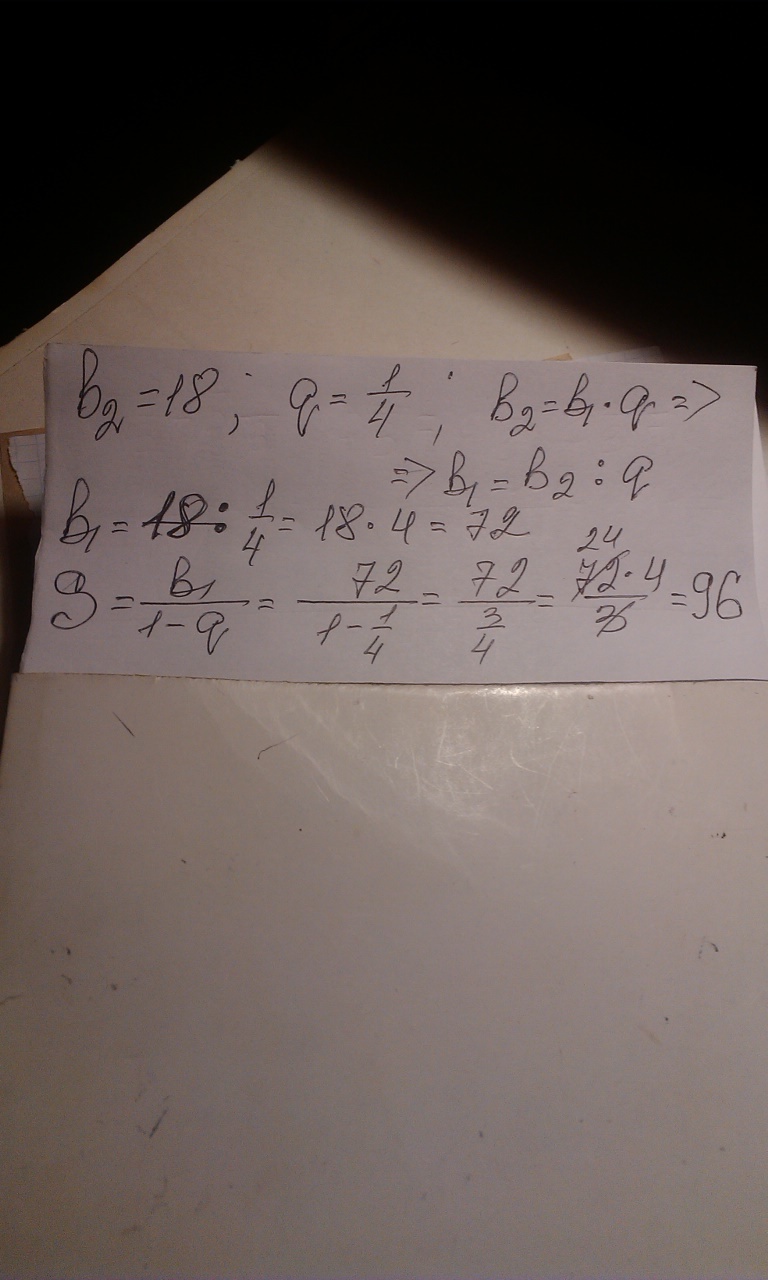 b₂ = 18; q = 1/4; b₂ = b₁ · q =>
=> b₁ = b₂ : q
b₁ = 18 : 1/4 = 18 · 4 = 72
S = b₁/(1-q) = 72/(1-1/4) = 72/(3/4) = 24 72·4/3 = 96